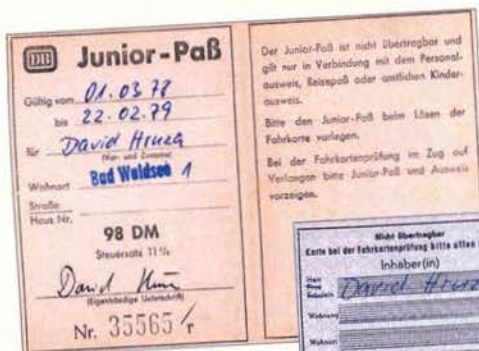 DB Junior-Paß
Gültig vom 01.03 78
bis 22.02.79
für David Hruza
(Vor- und Zuname)
Wohnort Bad Waldsee 1
Straße
Haus Nr.
98 DM
Steuersatz 11%
David
(Eigenhändige Unterschrift)
Nr. 35565/r
Der Junior-Paß ist nicht übertragbar und
gilt nur in Verbindung mit dem Personal-
ausweis, Reisepaß oder amtlichen Kinder-
ausweis.
Bitte den Junior-Paß beim Lösen der
Fahrkarte vorlegen.
Bei der Fahrkartenprüfung im Zug auf
Verlangen bitte Junior-Paß und Ausweis
vorzeigen.
Nicht übertragbar
Karte bei der Fahrkartenprüfung bitte offen
Inhaber(in)
Herr
Frau
Fräulein David Hruza
Wohnung
Wohnort